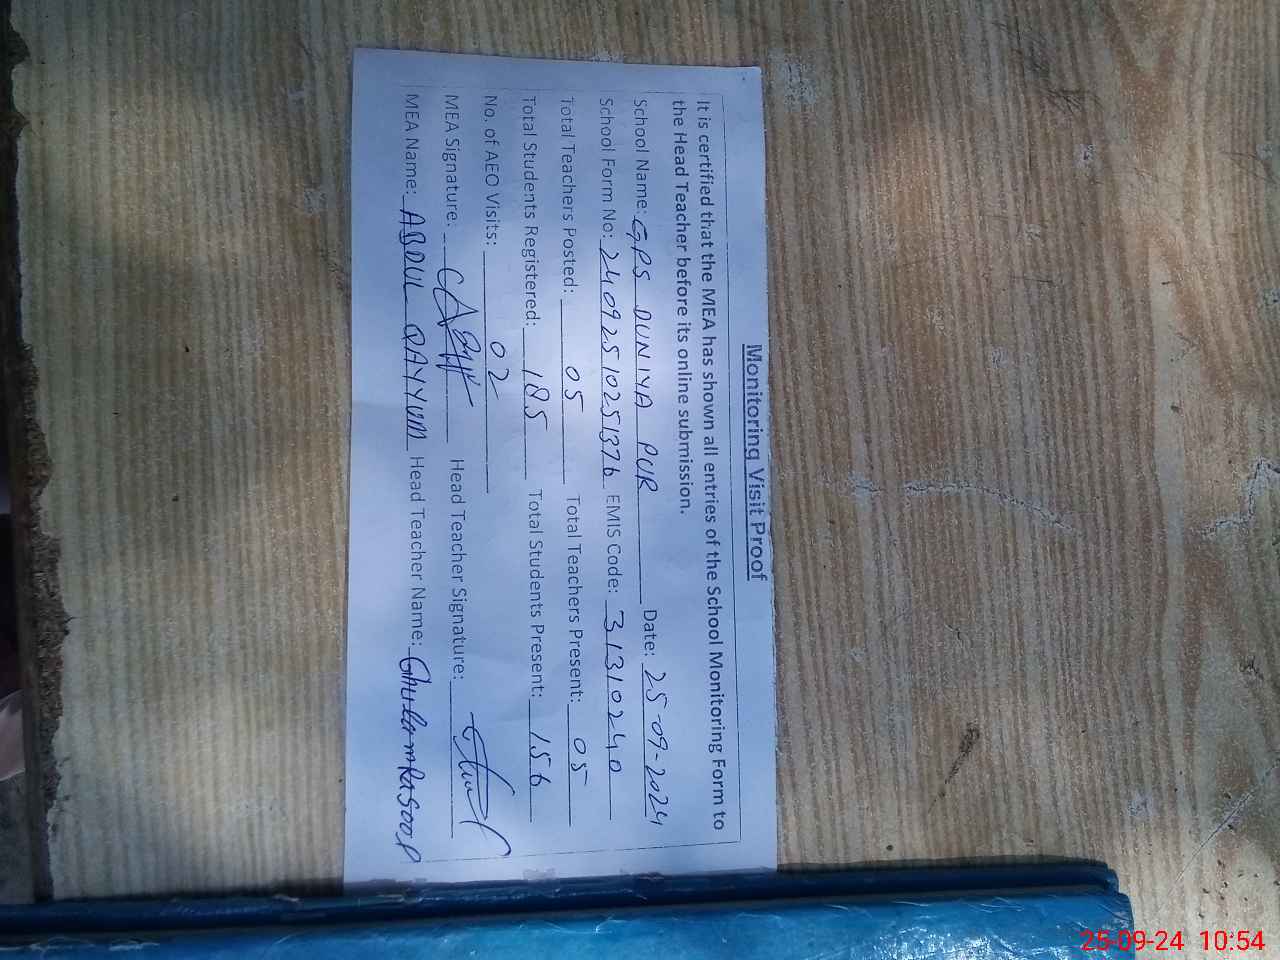 Monitoring Visit Proof
It is certified that the MEA has shown all entries of the School Monitoring Form to
the Head Teacher before its online submission.
School Name: GPS DUNIYA PUR Date: 25-09-2024
School Form No: 24092510251376 EMIS Code: 31310240
Total Teachers Posted: 05 Total Teachers Present: 05
Total Students Registered: 185 Total Students Present: 156
No. of AEO Visits: 02
MEA Signature: Head Teacher Signature:
MEA Name: ABDUL QAYYUM Head Teacher Name: Ghulam Rasool
25-09-24 10:54